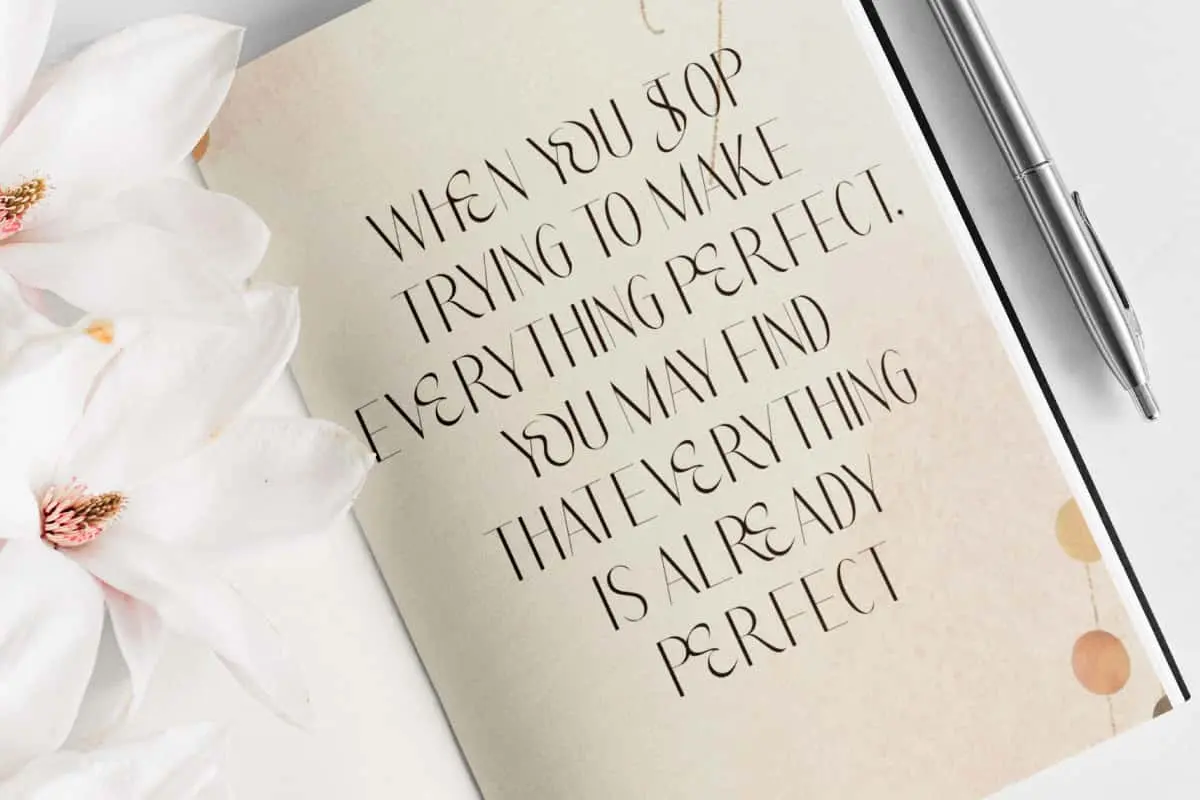 WHEN YOU STOP
TRYING TO MAKE
EVERYTHING PERFECT.
YOU MAY FIND
THAT EVERYTHING
IS ALREADY
PERFECT